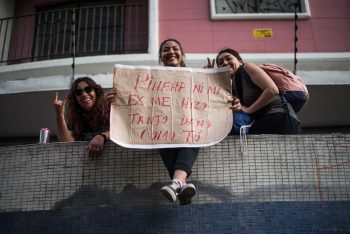 PIÑERA NI MI
EX ME HIZO
TANTO DAÑO
COMO TÚ